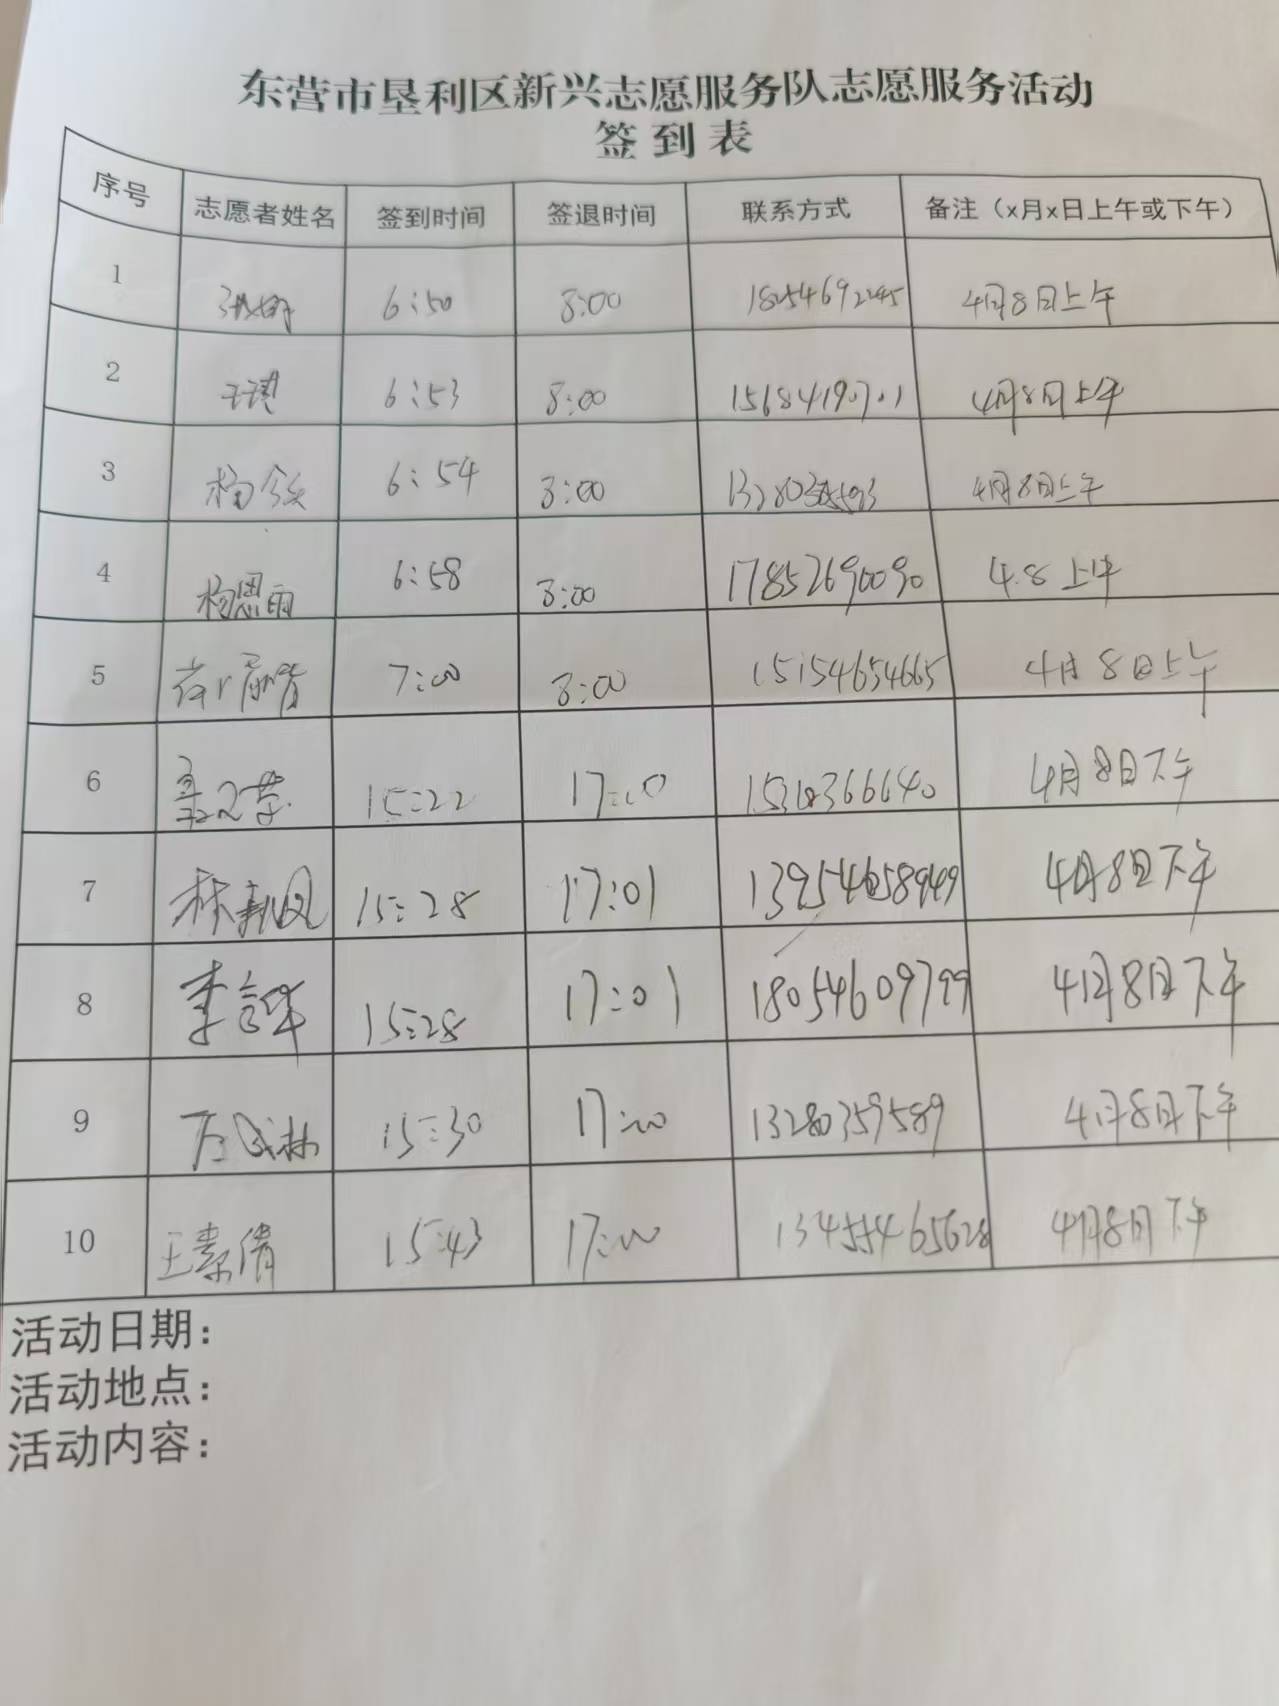 东营市垦利区新兴志愿服务队志愿服务活动
签到表
序号 志愿者姓名 签到时间 签退时间 联系方式 备注（x月x日上午或下午）
1 6:50 8:00 18254692245 4月8日上午
2 6:53 8:00 4月8日上午
3 6:54 8:00 4月8日上午
4 杨恩雨 6:58 8:00 17852690090 4.8上午
5 7:00 8:00 15154654665 4月8日上午
6 15:22 17:00 4月8日下午
7 林新凤 15:28 17:01 4月8日下午
8 李言华 15:28 17:01 18054609799 4月8日下午
9 15:30 17:00 13280359589 4月8日下午
10 王素倩 15:43 17:00 4月8日下午
活动日期：
活动地点：
活动内容：